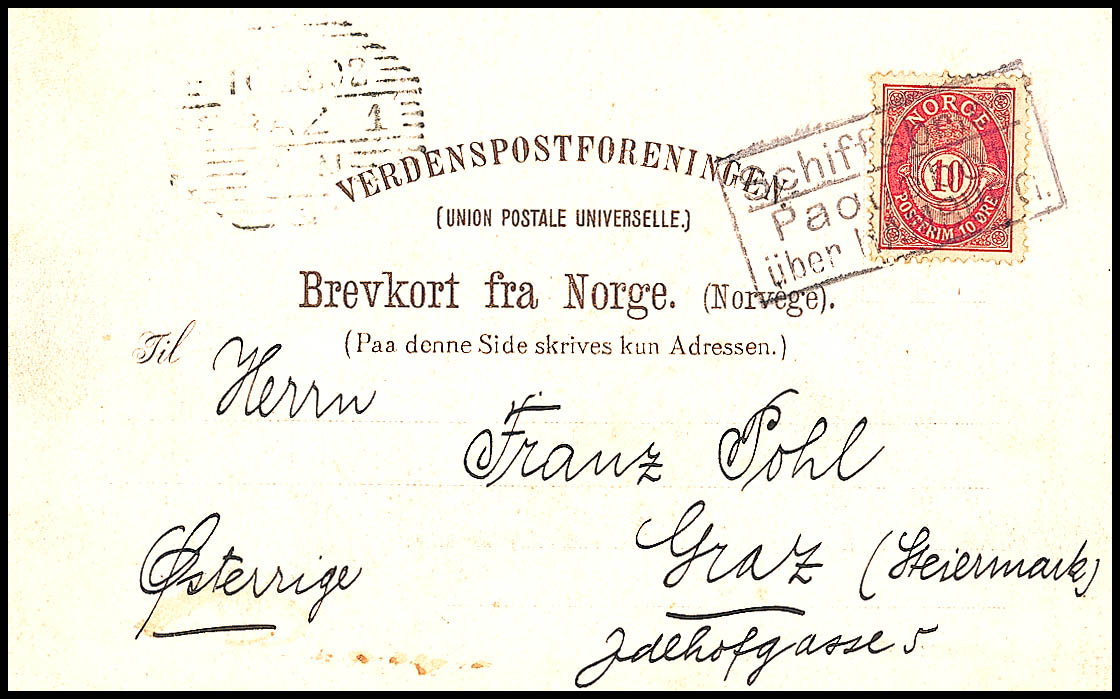 VERDENSPOSTFORENINGEN.
(UNION POSTALE UNIVERSELLE.)
Brevkort fra Norge. (Norvège).
(Paa denne Side skrives kun Adressen.)
NORGE
10
POSTFRIM 10 ØRE
über
1
Til Herrn
Franz Pohl
Graz (Steiermark)
Østerrige
5